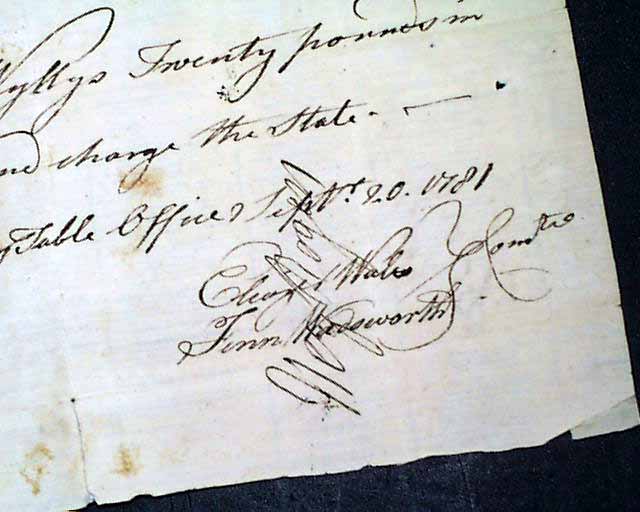 Wyllys Twenty pounds in
and charge the State.
Pay Table Office Septr. 20. 1781
Eleazr Wales
Fenn Wadsworth
Comtee